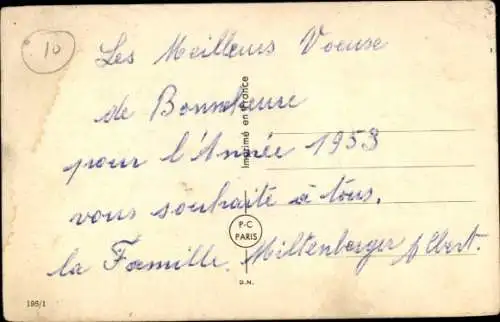 10
Les Meilleurs Voeuse
de Bonneheure
pour l'Année 1953
vous souhaite à tous.
la Famille. Miltenberger Albert.
Imprimé en France
P-C
PARIS
D.N.
196/1